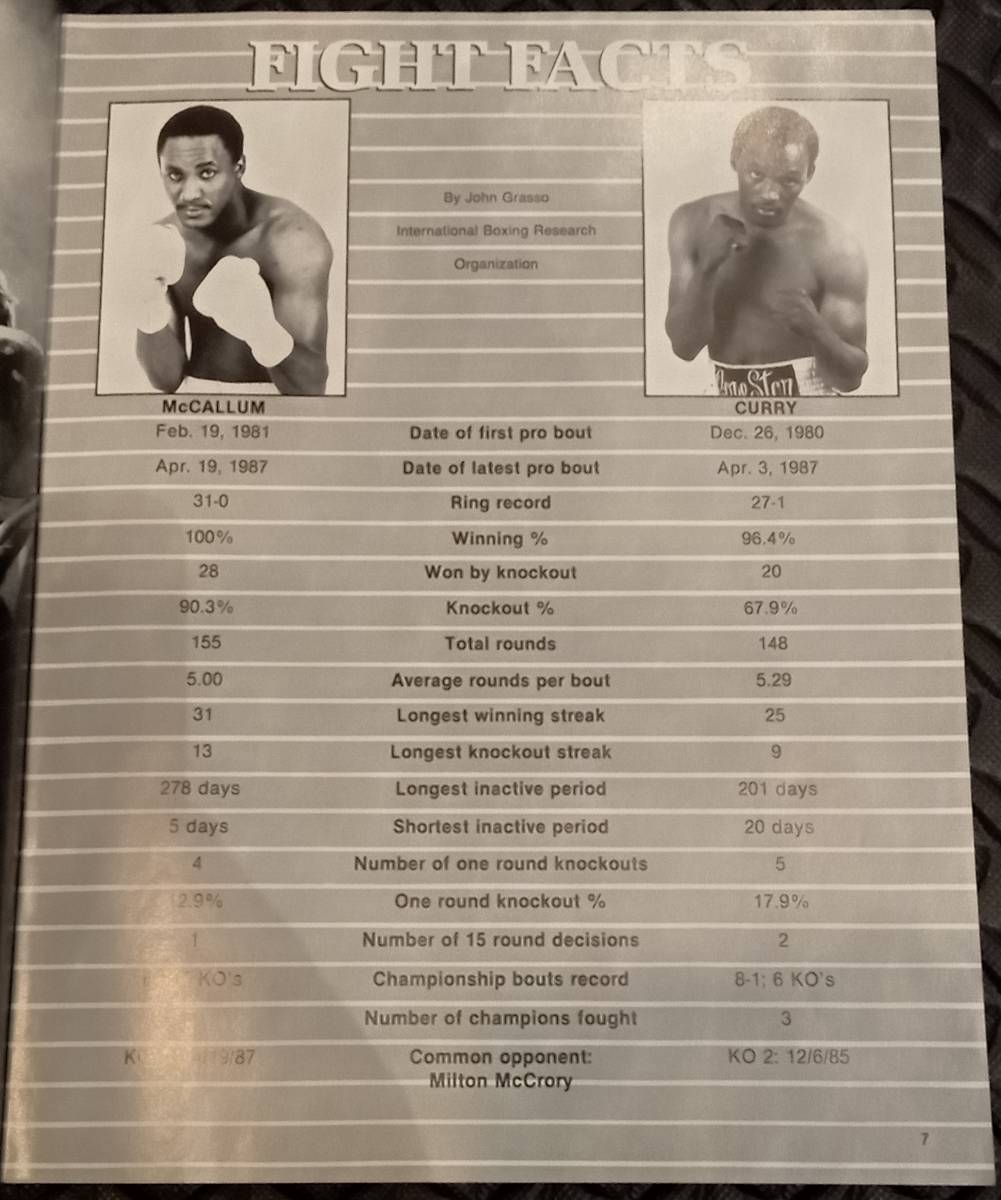 FIGHT FACTS
By John Grasso
International Boxing Research
Organization
Lone Star
McCALLUM CURRY
Feb. 19, 1981 Date of first pro bout Dec. 26, 1980
Apr. 19, 1987 Date of latest pro bout Apr. 3, 1987
31-0 Ring record 27-1
100% Winning % 96.4%
28 Won by knockout 20
90.3% Knockout % 67.9%
155 Total rounds 148
5.00 Average rounds per bout 5.29
31 Longest winning streak 25
13 Longest knockout streak 9
278 days Longest inactive period 201 days
5 days Shortest inactive period 20 days
4 Number of one round knockouts 5
12.9% One round knockout % 17.9%
1 Number of 15 round decisions 2
KO's Championship bouts record 8-1; 6 KO's
Number of champions fought 3
4/19/87 Common opponent: KO 2: 12/6/85
Milton McCrory
7